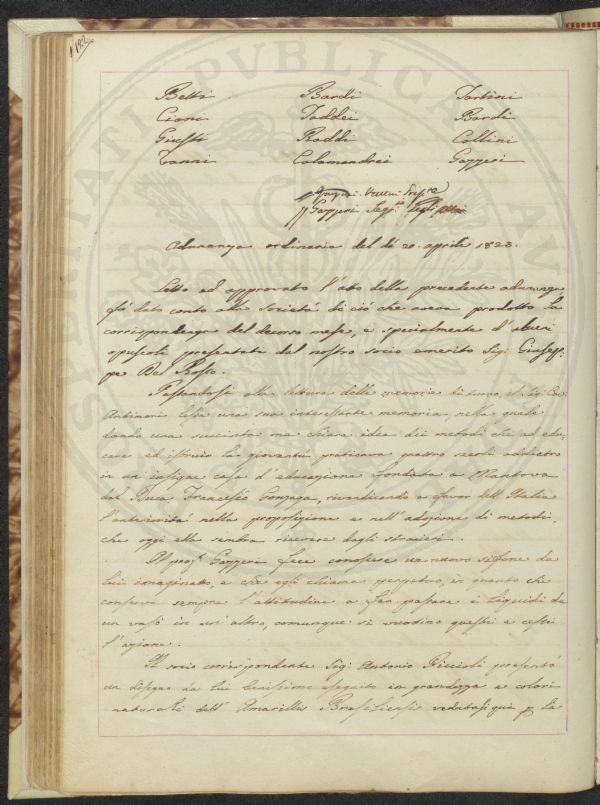 182
Betti Bardi Tartini
Cioni Taddei Bardi
Giusti Raddi Collini
Nanni Calamandrei Gazzeri
Vettini
Gazzeri Seg.º degli Atti
Adunanza ordinaria del dì 20. aprile 1823.
Letto ed approvato l'atto della precedente adunanza
fù dato conto alla Società di ciò che aveva prodotto la
corrispondenza del decorso mese, e specialmente d'alcuni
opuscoli presentati dal nostro socio emerito Sig. Giusep-
pe Del Rosso.
Passandosi alla lettura delle memorie di turno, il Sig. Cav.
Antinori lesse una sua interessante memoria, nella quale
dando una succinta ma chiara idea dei metodi che ad edu-
care ed istruir la gioventù praticava quattro secoli addietro
in un'insigne casa d'educazione fondata a Mantova
dal Duca Francesco Gonzaga, rivendicando a favor dell'Italia
l'anteriorità nella proposizione e nell'adozione di metodi,
che oggi ella sembra ricevere dagli stranieri.
Il prof. Gazzeri fece conoscere un nuovo sifone da
lui immaginato, e che egli chiama perpetuo, in quanto che
conserva sempre l'attitudine a far passare i liquidi da
un vaso in un'altro, comunque si vuotino questi e cessi
l'azione.
Il socio corrispondente Sig. Antonio Piccioli presentò
un disegno da lui benissimo eseguito in grandezza e colori
naturali dell'Amarillis Brasiliensis vedutasi quà p. la